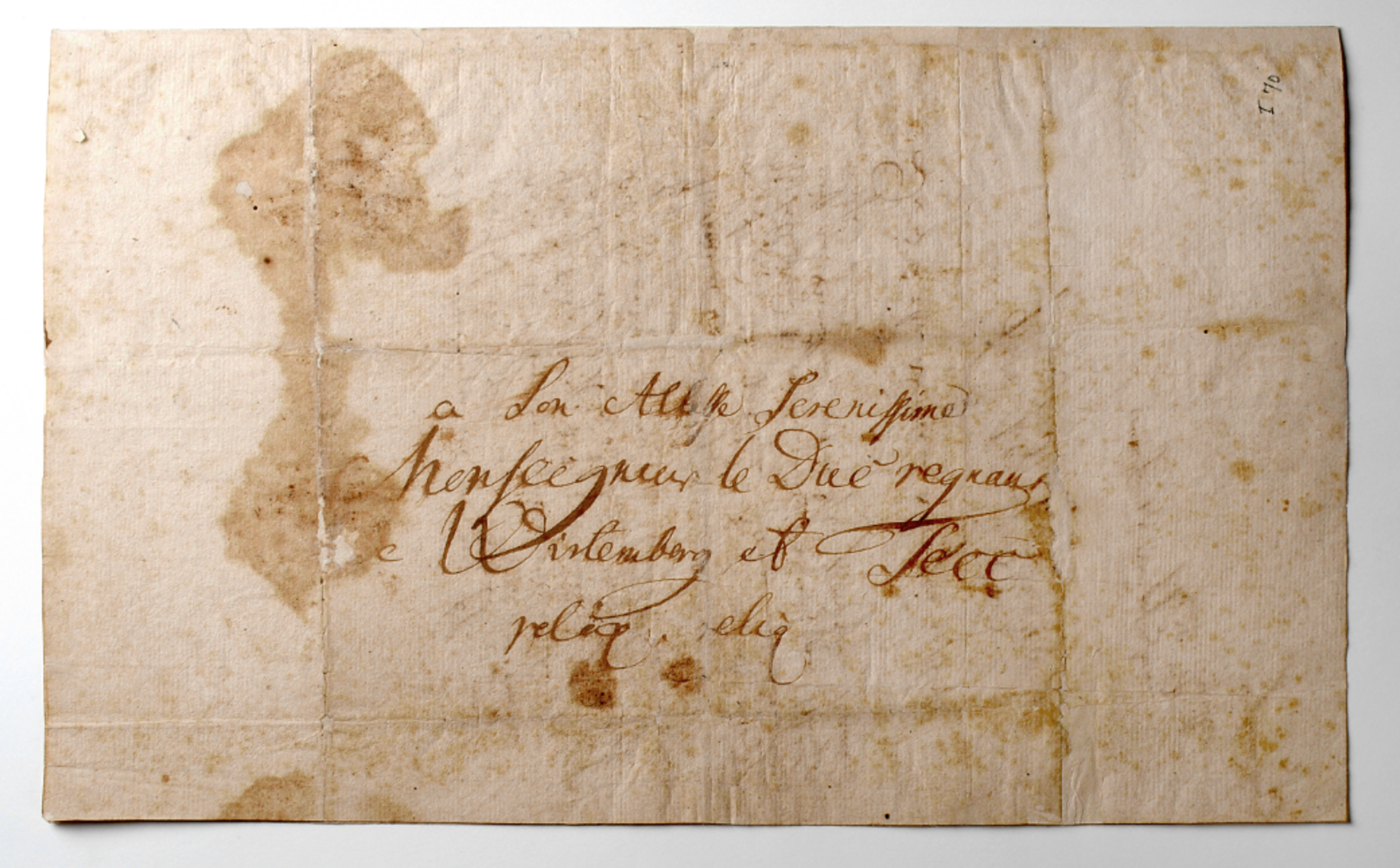 I 70
a Son Altesse Serenissime
Monseigneur le Duc regnant
e Wirtemberg et Tecc